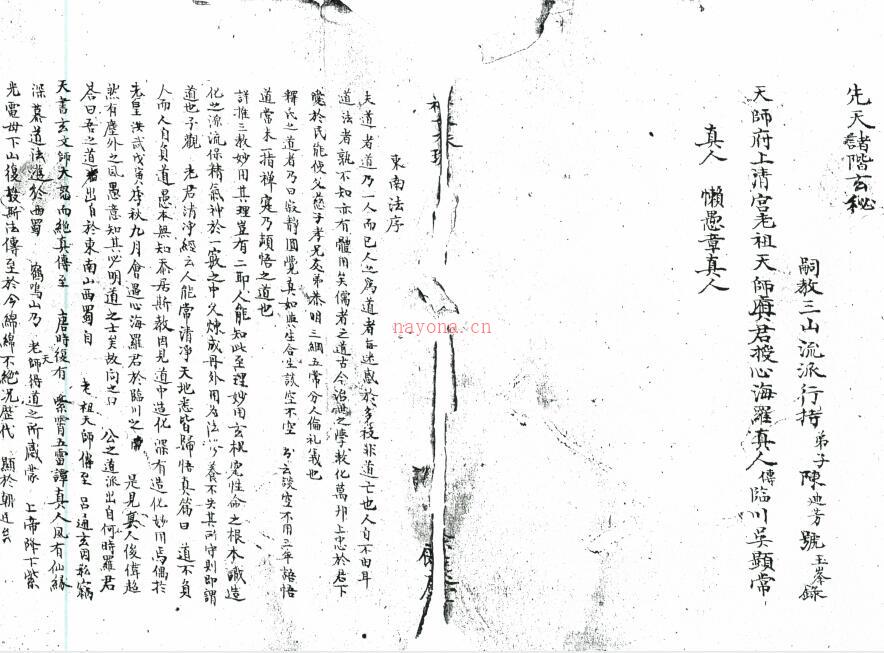 先天諸階玄秘
嗣教三山流派行持弟子陳迪芳號玉峯錄
天師府上清宮老祖天師真君授心海羅真人傳臨川吳顯常
真人 懶愚章真人
東南法序
夫道者道乃一人而已人之為道者每迷惑於多枝非道亡也人自不由耳
道法者孰不知亦有體用矣儒者之道古今治世之學教化萬邦上忠於君下
愛於民能使父慈子孝兄友弟恭明三綱五常分人倫礼義也
釋氏之道者乃曰寂靜圓覺真如與生合生談空不空 公云談空不用三年語悟
道當未一指禪寔乃頓悟之道也
詳推三教妙用其理豈有二耶人能知此至理妙用玄樸寔性命之根本識造
化之源流保精氣神於一竅之中久煉成丹外用為法 養不失其所守則即謂
道也予觀 老君清淨經云人能常清凈天地悉皆歸悟真篇曰 道不負
人而人自負道愚本無知忝居斯教因見道中造化深有造化妙用焉偶於
老皇洪武戊寅季秋九月會遇心海羅君於臨川之 是見真人俊偉超
然有塵外之風愚意知其必明道之士矣故问之曰 公之道派出自何時羅君
答曰吾之道出自於東南山西蜀自 老祖天師傳至 呂通玄因私竊
天書玄文師大怒而絕真傳至 唐時復有 紫霄五雷譚真人夙有仙緣
深慕道法進於西蜀 鶴鳴山乃 老天師得道之所感蒙 上帝降下紫
光電毋下山後授斯法傳至於今綿綿不絕况歷代 顯於朝廷
nayona.cn